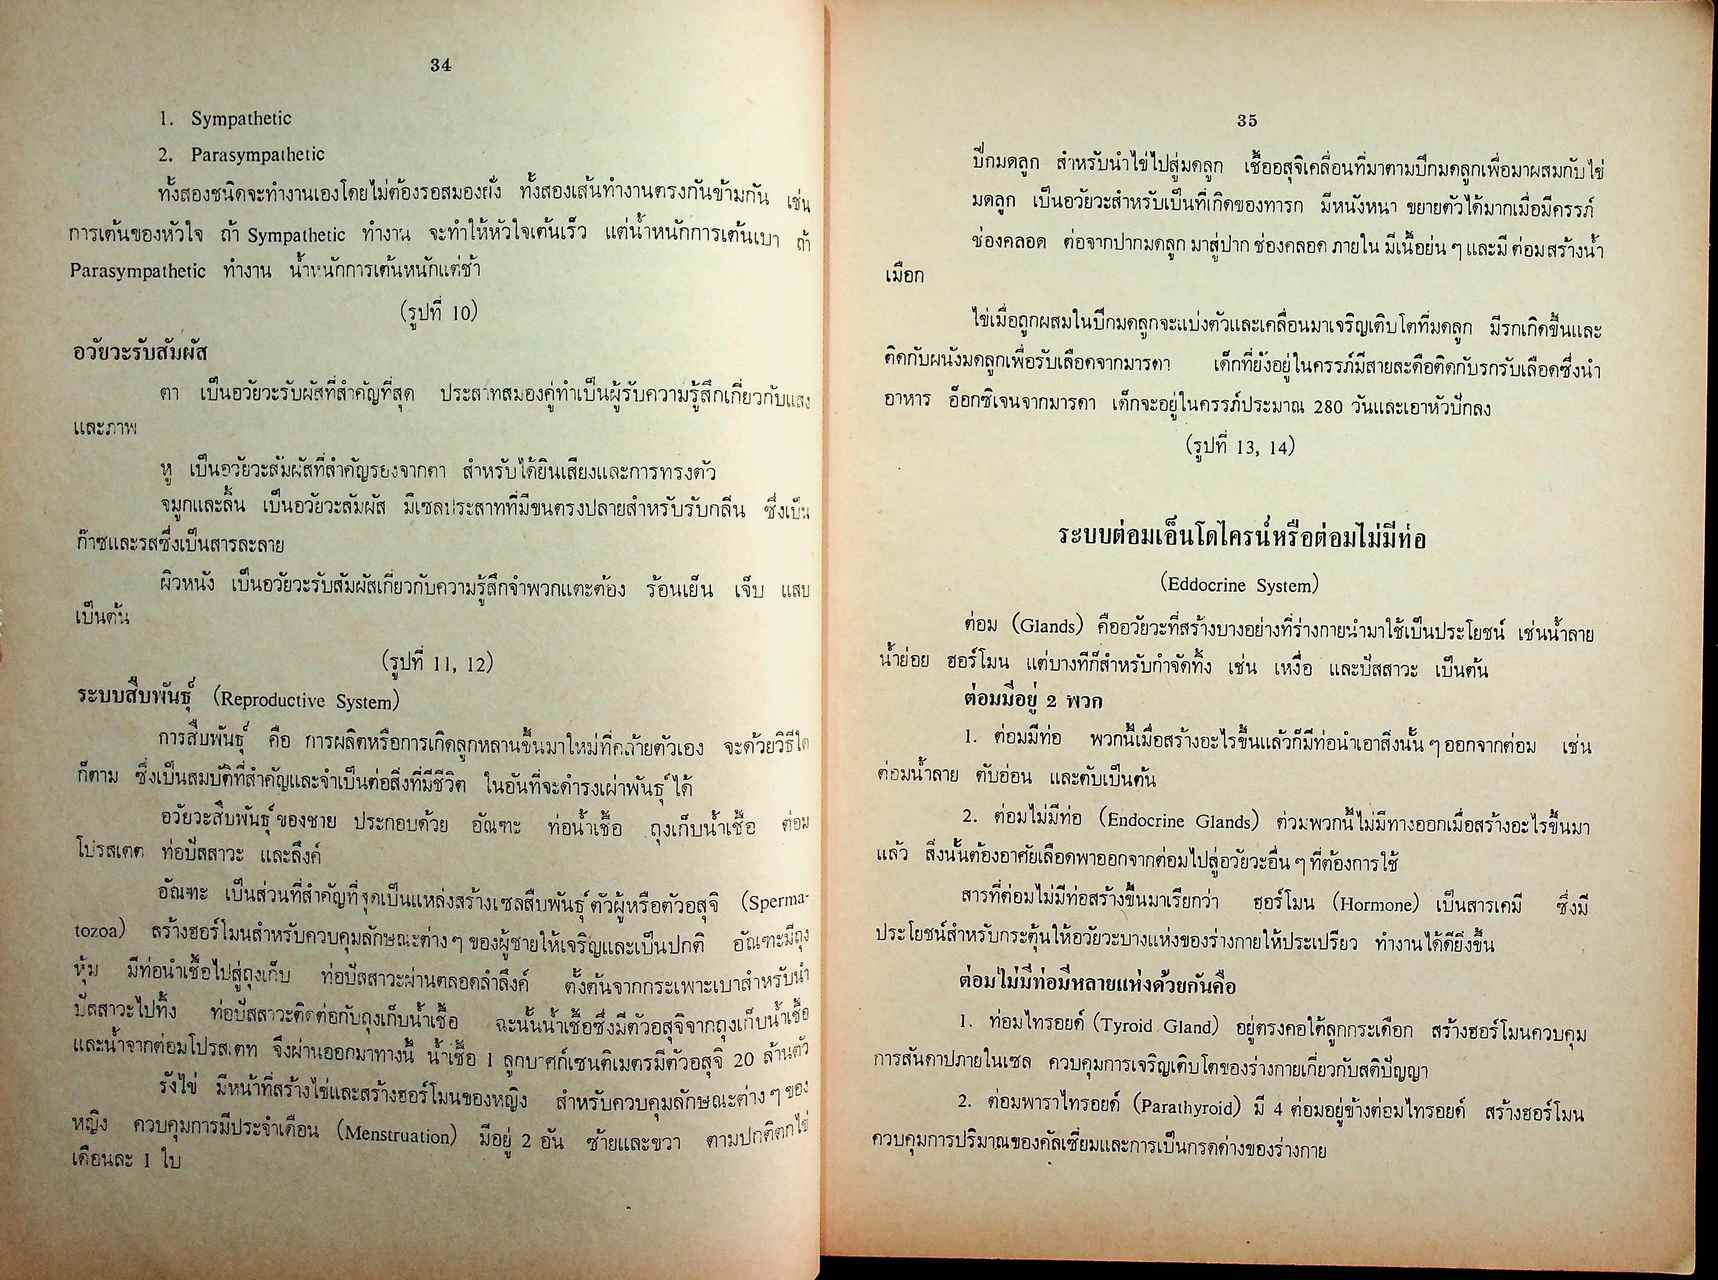 34
1. Sympathetic
2. Parasympathetic
ทั้งสองชนิดจะทำงานเองโดยไม่ต้องรอสมองสั่ง ทั้งสองเส้นทำงานตรงกันข้ามกัน เช่น
การเต้นของหัวใจ ถ้า Sympathetic ทำงาน จะทำให้หัวใจเต้นเร็ว แต่น้ำหนักการเต้นเบา ถ้า
Parasympathetic ทำงาน น้ำหนักการเต้นหนักแต่ช้า
(รูปที่ 10)
อวัยวะรับสัมผัส
ตา เป็นอวัยวะรับผัสที่สำคัญที่สุด ประสาทสมองคู่ทำเป็นผู้รับความรู้สึกเกี่ยวกับแสง
และภาพ
หู เป็นอวัยวะสัมผัสที่สำคัญรองจากตา สำหรับได้ยินเสียงและการทรงตัว
จมูกและลิ้น เป็นอวัยวะสัมผัส มีเซลประสาทที่มีขนตรงปลายสำหรับรับกลิ่น ซึ่งเป็น
ก๊าซและรสซึ่งเป็นสารละลาย
ผิวหนัง เป็นอวัยวะรับสัมผัสเกี่ยวกับความรู้สึกจำพวกแตะต้อง ร้อนเย็น เจ็บ แสบ
เป็นต้น
(รูปที่ 11, 12)
ระบบสืบพันธุ์ (Reproductive System)
การสืบพันธุ์ คือ การผลิตหรือการเกิดลูกหลานขึ้นมาใหม่ที่คล้ายตัวเอง จะด้วยวิธีใด
ก็ตาม ซึ่งเป็นสมบัติที่สำคัญและจำเป็นต่อสิ่งที่มีชีวิต ในอันที่จะดำรงเผ่าพันธุ์ได้
อวัยวะสืบพันธุ์ของชาย ประกอบด้วย อัณฑะ ท่อน้ำเชื้อ ถุงเก็บน้ำเชื้อ ต่อม
โปรสเตต ท่อปัสสาวะ และลึงค์
อัณฑะ เป็นส่วนที่สำคัญที่จุดเป็นแหล่งสร้างเซลสืบพันธุ์ตัวผู้หรือตัวอสุจิ (Sperma-
tozoa) สร้างฮอร์โมนสำหรับควบคุมลักษณะต่าง ๆ ของผู้ชายให้เจริญและเป็นปกติ อัณฑะมีถุง
หุ้ม มีท่อนำเชื้อไปสู่ถุงเก็บ ท่อปัสสาวะผ่านตลอดลำลึงค์ ตั้งต้นจากกระเพาะเบาสำหรับนำ
ปัสสาวะไปทิ้ง ท่อปัสสาวะติดต่อกับถุงเก็บน้ำเชื้อ ฉะนั้นน้ำเชื้อซึ่งมีตัวอสุจิจากถุงเก็บน้ำเชื้อ
และน้ำจากต่อมโปรสเตท จึงผ่านออกมาทางนี้ น้ำเชื้อ 1 ลูกบาศก์เซนติเมตรมีตัวอสุจิ 20 ล้านตัว
รังไข่ มีหน้าที่สร้างไข่และสร้างฮอร์โมนของหญิง สำหรับควบคุมลักษณะต่าง ๆ ของ
หญิง ควบคุมการมีประจำเดือน (Menstruation) มีอยู่ 2 อัน ซ้ายและขวา ตามปกติตกไข่
เดือนละ 1 ใบ
35
ปีกมดลูก สำหรับนำไข่ไปสู่มดลูก เชื้ออสุจิเคลื่อนที่มาตามปีกมดลูกเพื่อมาผสมกับไข่
มดลูก เป็นอวัยวะสำหรับเป็นที่เกิดของทารก มีหนังหนา ขยายตัวได้มากเมื่อมีครรภ์
ช่องคลอด ต่อจากปากมดลูก มาสู่ปาก ช่องคลอด ภายใน มีเนื้อย่น ๆ และมี ต่อมสร้างน้ำ
เมือก
ไข่เมื่อถูกผสมในปีกมดลูกจะแบ่งตัวและเคลื่อนมาเจริญเติบโตที่มดลูก มีรกเกิดขึ้นและ
ติดกับผนังมดลูกเพื่อรับเลือดจากมารดา เด็กที่ยังอยู่ในครรภ์มีสายสะดือติดกับรกรับเลือดซึ่งนำ
อาหาร อ็อกซิเจนจากมารดา เด็กจะอยู่ในครรภ์ประมาณ 280 วันและเอาหัวปักลง
(รูปที่ 13, 14)
ระบบต่อมเอ็นโดไครน์หรือต่อมไม่มีท่อ
(Eddocrine System)
ต่อม (Glands) คืออวัยวะที่สร้างบางอย่างที่ร่างกายนำมาใช้เป็นประโยชน์ เช่นน้ำลาย
น้ำย่อย ฮอร์โมน แต่บางทีก็สำหรับกำจัดทิ้ง เช่น เหงื่อ และปัสสาวะ เป็นต้น
ต่อมมีอยู่ 2 พวก
1. ต่อมมีท่อ พวกนี้เมื่อสร้างอะไรขึ้นแล้วก็มีท่อนำเอาสิ่งนั้น ๆ ออกจากต่อม เช่น
ต่อมน้ำลาย ตับอ่อน และตับเป็นต้น
2. ต่อมไม่มีท่อ (Endocrine Glands) ต่วมพวกนี้ไม่มีทางออกเมื่อสร้างอะไรขึ้นมา
แล้ว สิ่งนั้นต้องอาศัยเลือดพาออกจากต่อมไปสู่อวัยวะอื่น ๆ ที่ต้องการใช้
สารที่ต่อมไม่มีท่อสร้างขึ้นมาเรียกว่า ฮอร์โมน (Hormone) เป็นสารเคมี ซึ่งมี
ประโยชน์สำหรับกระตุ้นให้อวัยวะบางแห่งของร่างกายให้ประเปรียว ทำงานได้ดียิ่งขึ้น
ต่อมไม่มีท่อมีหลายแห่งด้วยกันคือ
1. ท่อมไทรอยด์ (Tyroid Gland) อยู่ตรงคอใต้ลูกกระเดือก สร้างฮอร์โมนควบคุม
การสันดาปภายในเซล ควบคุมการเจริญเติบโตของร่างกายเกี่ยวกับสติปัญญา
2. ต่อมพาราไทรอยด์ (Parathyroid) มี 4 ต่อมอยู่ข้างต่อมไทรอยด์ สร้างฮอร์โมน
ควบคุมการปริมาณของคัลเซี่ยมและการเป็นกรดด่างของร่างกาย